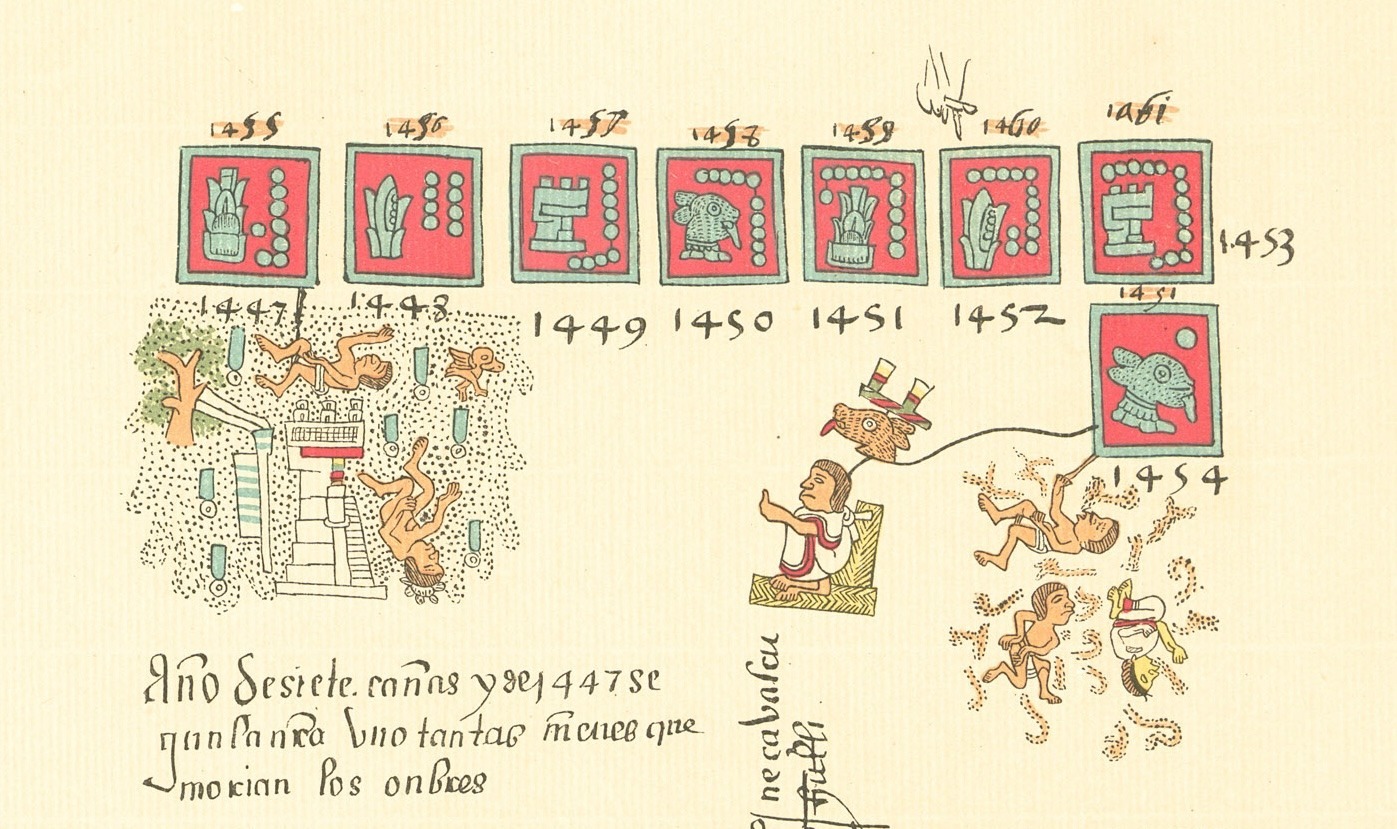 1455 1456 1457 1458 1459 1460 1461
1453
1447 1448 1449 1450 1451 1452
1451
1454
Año de siete. cañas y de 1447 se
gun la nra vuo tantas nieues que
morian los onbres